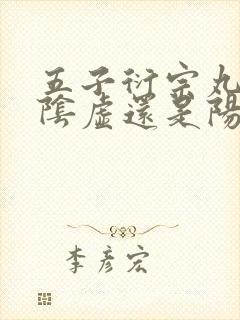 五子衍宗丸
陰虛還是陽
李彥宏